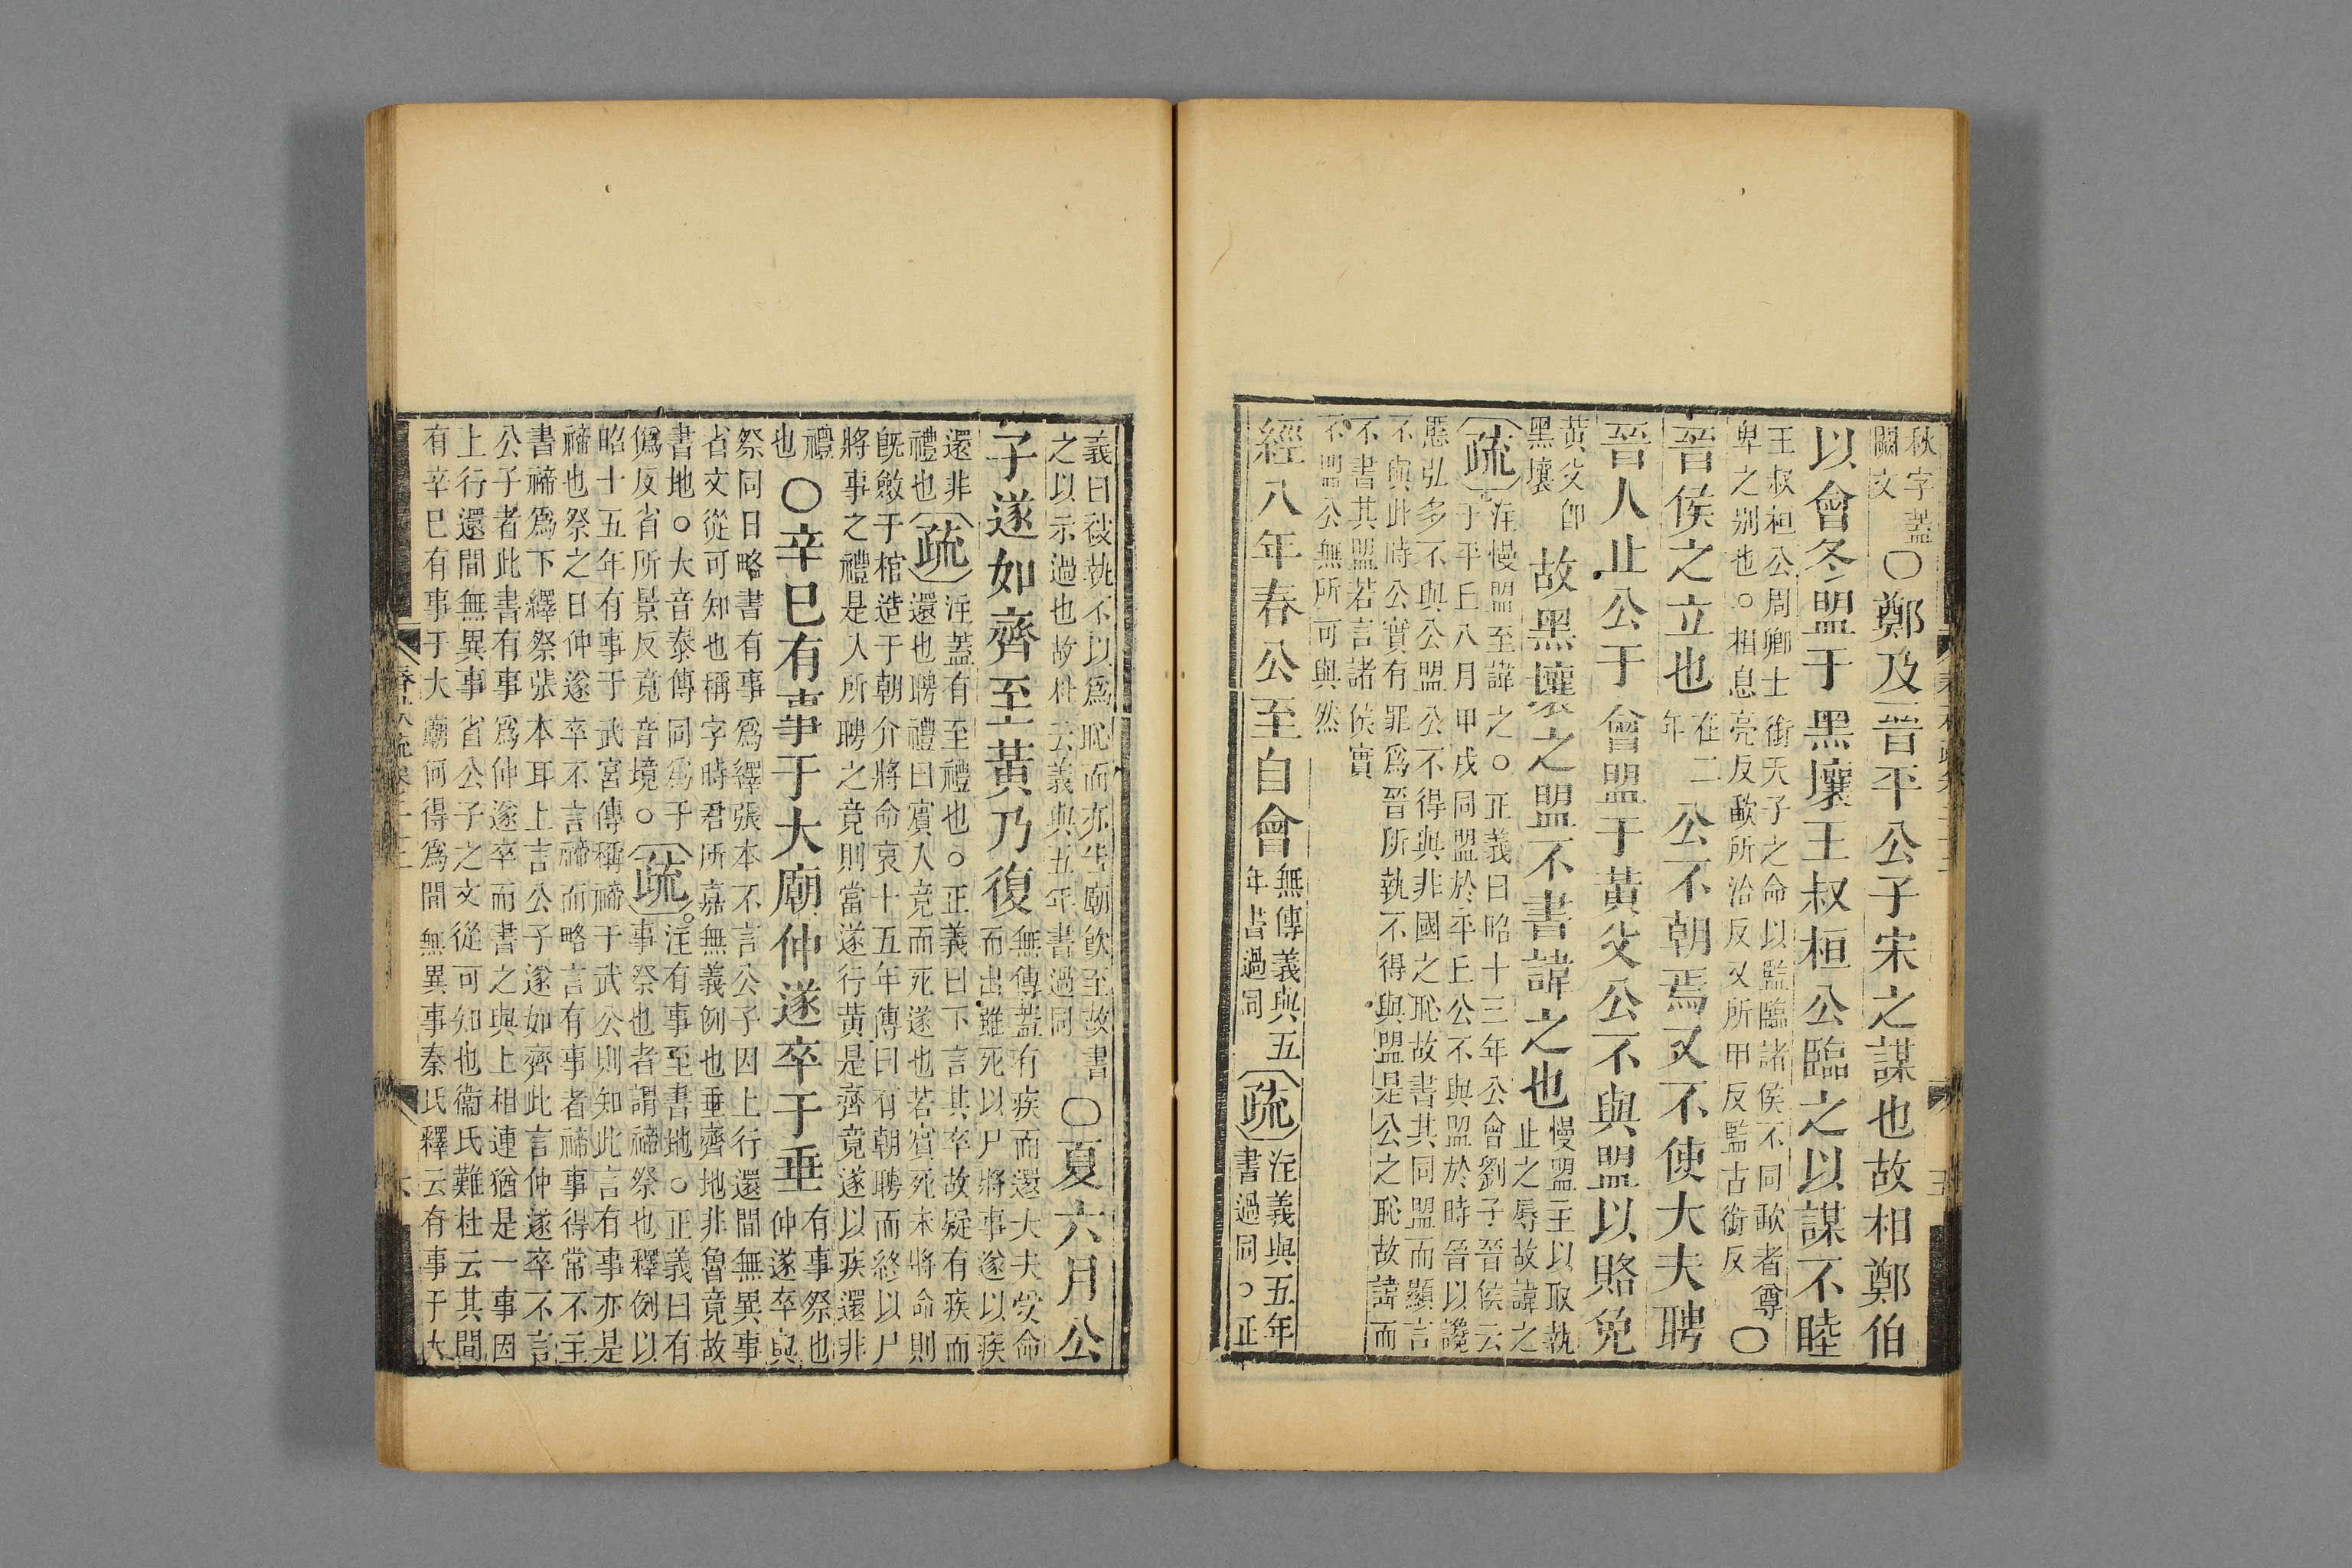 秋字蓋
闕文
○鄭及晉平公子宋之謀也故相鄭伯
以會冬盟于黑壤王叔桓公臨之以謀不睦
王叔桓公周卿士銜天子之命以監臨諸侯不同歃者尊
卑之别也○相息亮反歃所洽反又所甲反監古銜反
○
晉侯之立也
在二
年
公不朝焉又不使大夫聘
晉人止公于會盟于黃父公不與盟以賂免
黃父卽
黑壤
故黑壤之盟不書諱之也
慢盟主以取執
止之辱故諱之
疏
注慢盟至諱之○正義曰昭十三年公會劉子晉侯云
云于平丘八月甲戌同盟於平丘公不與盟於時晉以讒
慝弘多不與公盟公不得與非國之恥故書其同盟而顯言
不與此時公實有罪爲晉所執不得與盟是公之恥故諱而
不書其盟若言諸侯實
不盟公無所可與然
經八年春公至自會
無傳義與五
年書過同
疏
注義與五年
書過同○正
義曰被執不以爲恥而亦告廟飲至故書
之以示過也故杜云義與五年書過同
○夏六月公
子遂如齊至黃乃復
無傳蓋有疾而還大夫受命
而出雖死以尸將事遂以疾
還非
禮也
疏
注蓋有至禮也○正義曰下言其卒故疑有疾而
還也聘禮曰賓入竟而死遂也若賓死未將命則
旣斂于棺造于朝介將命哀十五年傳曰有朝聘而終以尸
將事之禮是人所聘之竟則當遂行黃是齊竟遂以疾還非
禮
也
○辛巳有事于大廟仲遂卒于垂
有事祭也
仲遂卒與
祭同日略書有事爲繹張本不言公子因上行還間無異事
省文從可知也稱字時君所嘉無義例也垂齊地非魯竟故
書地○大音泰傳同爲于
僞反省所景反竟音境○
疏
注有事至書地○正義曰有
事祭也者謂禘祭也釋例以
昭十五年有事于武宮傳稱禘于武公則知此言有事亦是
禘也祭之日仲遂卒不言禘而略言有事者禘事得常不主
書禘爲下繹祭張本耳上言公子遂如齊此言仲遂卒不言
公子者此書有事爲仲遂卒而書之與上相連猶是一事因
上行還間無異事省公子之文從可知也衞氏難杜云其間
有辛巳有事于大廟何得爲間無異事秦氏釋云有事于大